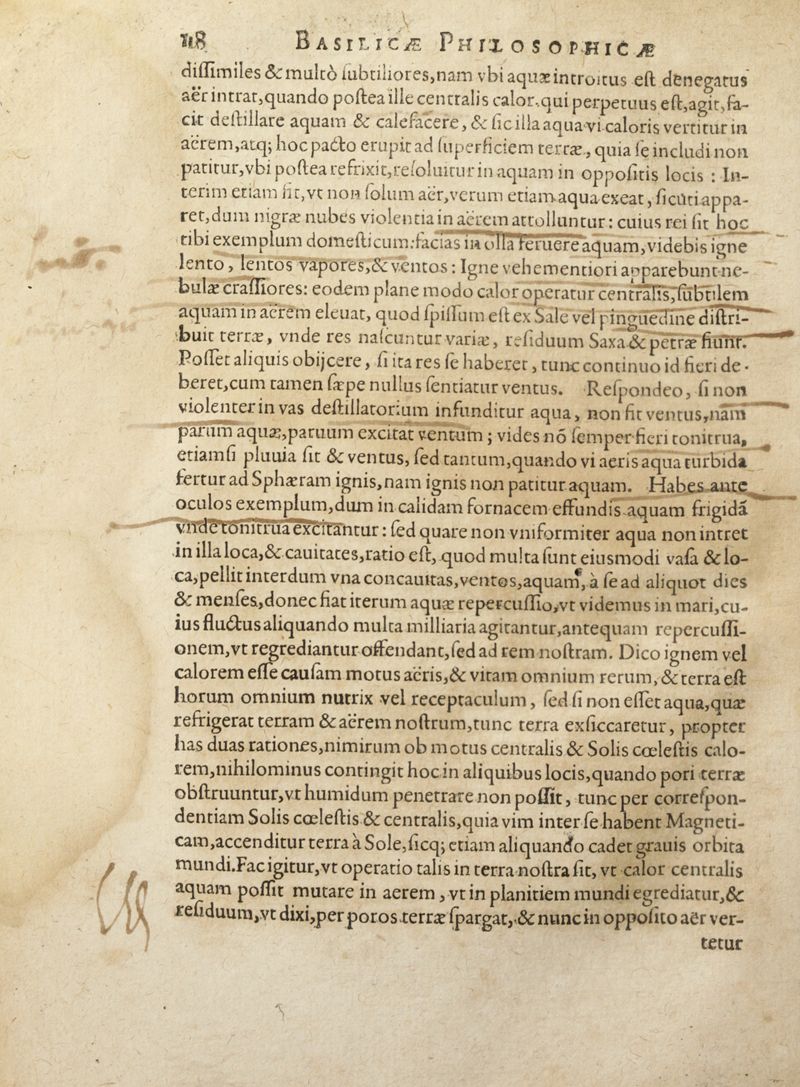 118 BASILICÆ PHILOSOPHICÆ
diſſimiles & multò ſubtiliores, nam vbi aquæ introitus eſt denegatus
aër intrat, quando poſtea ille centralis calor, qui perpetuus eſt, agit, fa-
cit deſtillare aquam & calefacere, & ſic illa aqua vi caloris vertitur in
aërem, atq; hoc pacto erupit ad ſuperficiem terræ, quia ſe includi non
patitur, vbi poſtea refrixit, reſoluitur in aquam in oppoſitis locis : In-
terim etiam fit, vt non ſolum aër, verum etiam aqua exeat, ſicuti appa-
ret, dum nigræ nubes violentia in aërem attolluntur : cuius rei ſit hoc
tibi exemplum domeſticum: facias in olla feruere aquam, videbis igne
lento, lentos vapores, & ventos : Igne vehementiori apparebunt ne-
bulæ craſſiores: eodem plane modo calor operatur centralis, ſubtilem
aquam in aërem eleuat, quod ſpiſſum eſt ex Sale vel pinguedine diſtri-
buit terræ, vnde res naſcuntur variæ, reſiduum Saxa & petræ fiunt.
Poſſet aliquis obijcere, ſi ita res ſe haberet, tunc continuo id fieri de-
beret, cum tamen ſæpe nullus ſentiatur ventus. Reſpondeo, ſi non
violenter in vas deſtillatorium infunditur aqua, non fit ventus, nam
parum aquæ, paruum excitat ventum ; vides nō ſemper fieri tonitrua,
etiamſi pluuia fit & ventus, ſed tantum, quando vi aeris aqua turbida
fertur ad Sphæram ignis, nam ignis non patitur aquam. Habes ante
oculos exemplum, dum in calidam fornacem effundis aquam frigidā
vnde tonitrua excitantur : ſed quare non vniformiter aqua non intret
in illa loca, & cauitates, ratio eſt, quod multa ſunt eiusmodi vaſa & lo-
ca, pellit interdum vna concauitas, ventos, aquam, à ſe ad aliquot dies
& menſes, donec fiat iterum aquæ repercuſſio, vt videmus in mari, cu-
ius fluctus aliquando multa milliaria agitantur, antequam repercuſſi-
onem, vt regrediantur offendant, ſed ad rem noſtram. Dico ignem vel
calorem eſſe cauſam motus aëris, & vitam omnium rerum, & terra eſt
horum omnium nutrix vel receptaculum, ſed ſi non eſſet aqua, quæ
refrigerat terram & aërem noſtrum, tunc terra exſiccaretur, propter
has duas rationes, nimirum ob motus centralis & Solis cœleſtis calo-
rem, nihilominus contingit hoc in aliquibus locis, quando pori terræ
obſtruuntur, vt humidum penetrare non poſſit, tunc per correſpon-
dentiam Solis cœleſtis & centralis, quia vim inter ſe habent Magneti-
cam, accenditur terra à Sole, ſicq; etiam aliquando cadet grauis orbita
mundi. Fac igitur, vt operatio talis in terra noſtra fit, vt calor centralis
aquam poſſit mutare in aerem, vt in planitiem mundi egrediatur, &
reſiduum, vt dixi, per poros terræ ſpargat, & nunc in oppoſito aër ver-
tetur